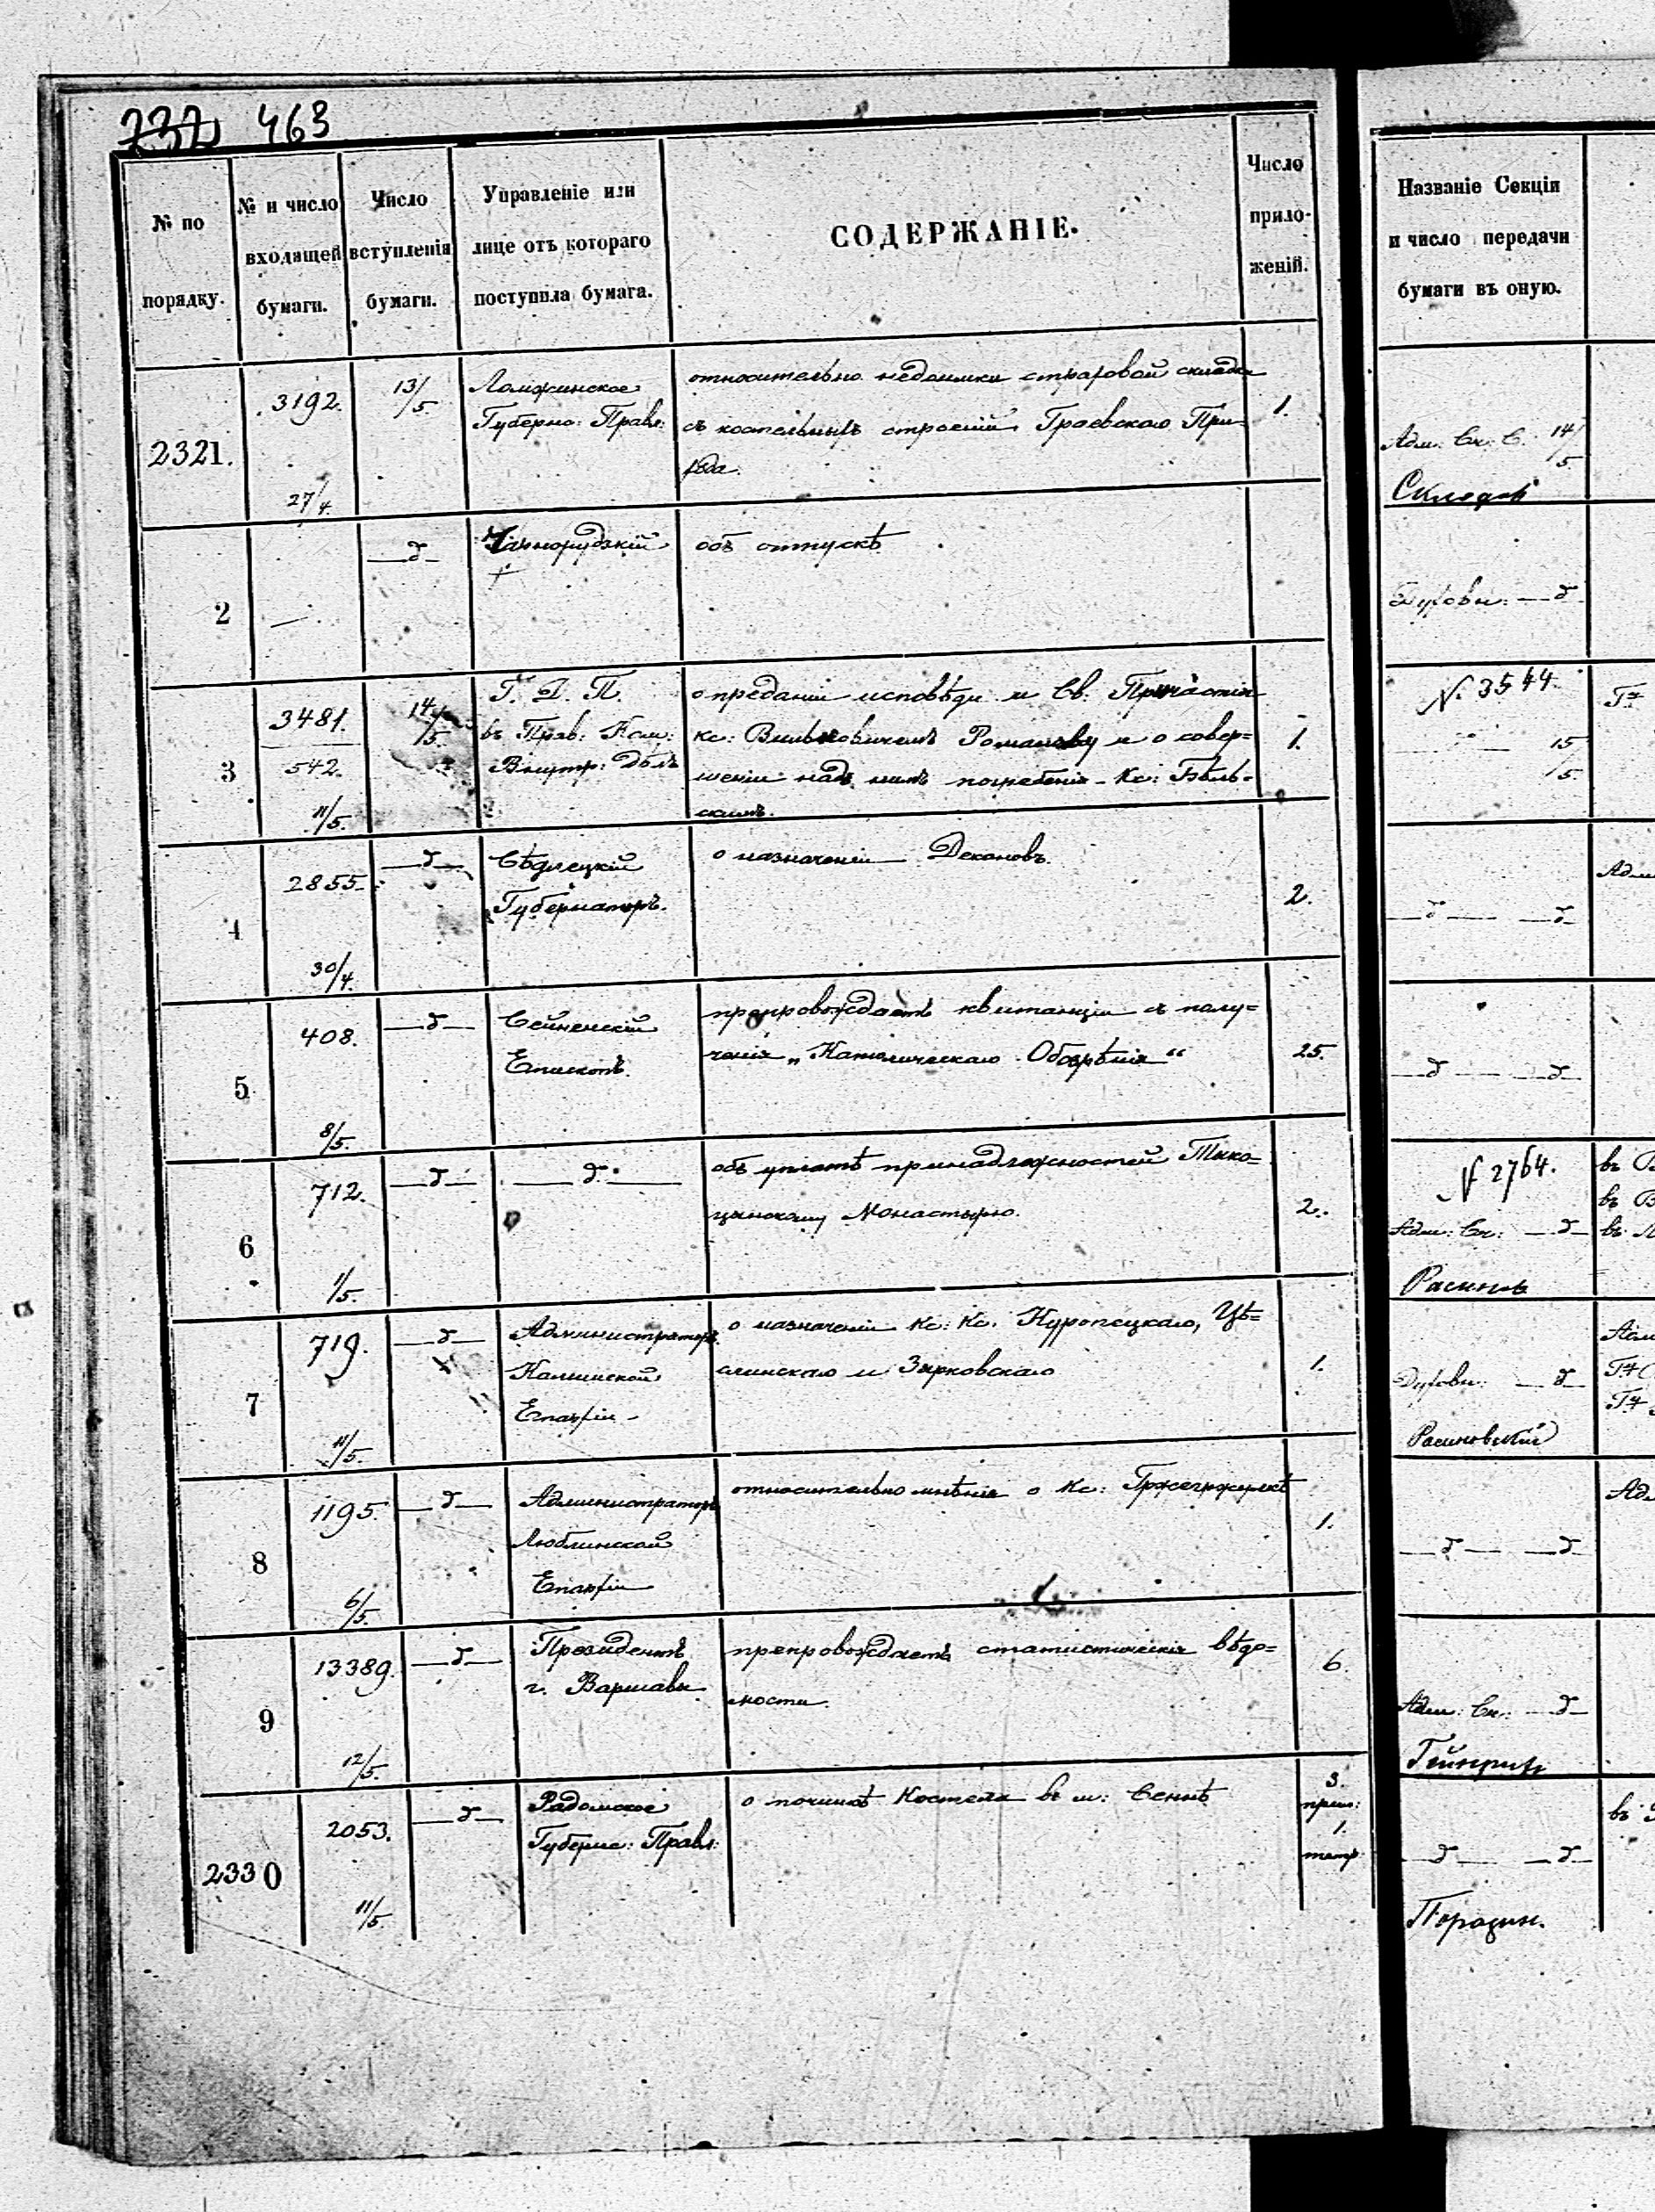 732 463
№ по
порядку.
№ и число
входящей
бумаги.
Число
вступленія
бумаги.
Управленіе или
лице отъ котораго
поступила бумага.
СОДЕРЖАНІЕ.
Число
прило-
женій.
Названіе Секціи
и число передачи
бумаги въ оную.
2321.
3192.
27/4.
13/5.
Ломжинское
Губернс: Правл:
относительно недоимки страховой складки
съ костельныхъ строеній Граевскаго При-
хода.
1.
Адм: Ск: С. 14/5.
2
—
—д—
объ отпускѣ
Духовн: —д
3
3481.
542.
11/5.
14/5.
Г. Д. П.
въ Прав: Ком:
Внутр: Дѣлъ
о преданіи исповѣди и Св: Причастія
кс: Романову и о совер=
шеніи надъ нимъ погребенія Кс: Бѣль=
скимъ.
1.
№ 3544.
15/5.
Гд
4
2855.
30/4.
—д—
Сѣдлецкій
Губернаторъ.
о назначеніи Декановъ.
2.
—д— —д—
Адм
5
408.
8/5.
—д—
Сейненскій
Епископъ.
препровождаетъ квитанціи съ полу=
ченія „Католическаго Обозрѣнія“
25.
—д— —д—
6
712.
1/5.
—д—
—д—
объ уплатѣ принадлежностей Тыко=
цинскому Монастырю.
2.
№ 2764.
Адм: Ск: —д—
въ
въ В
въ
7
719.
11/5.
—д—
Администраторъ
Калишской
Епархіи
о назначеніи Кс: Кс: Куропецкаго, Цѣ=
слинскаго и Зярковскаго
1.
Духовн: —д—
Расиновскій
8
1195.
6/5.
—д—
Администраторъ
Люблинской
Епархіи
относительно мнѣнія о Кс:
1.
—д— —д—
Адм
9
13389.
12/5.
—д—
Президентъ
г. Варшавы
препровождаетъ статистическія вѣдо=
мости.
6.
Адм: Ск: —д—
2330
2053.
11/5.
—д—
Радомское
Губернс: Правл:
о починкѣ Костела въ м: Сеннѣ.
3.
прил:
1.
—д— —д—
въ